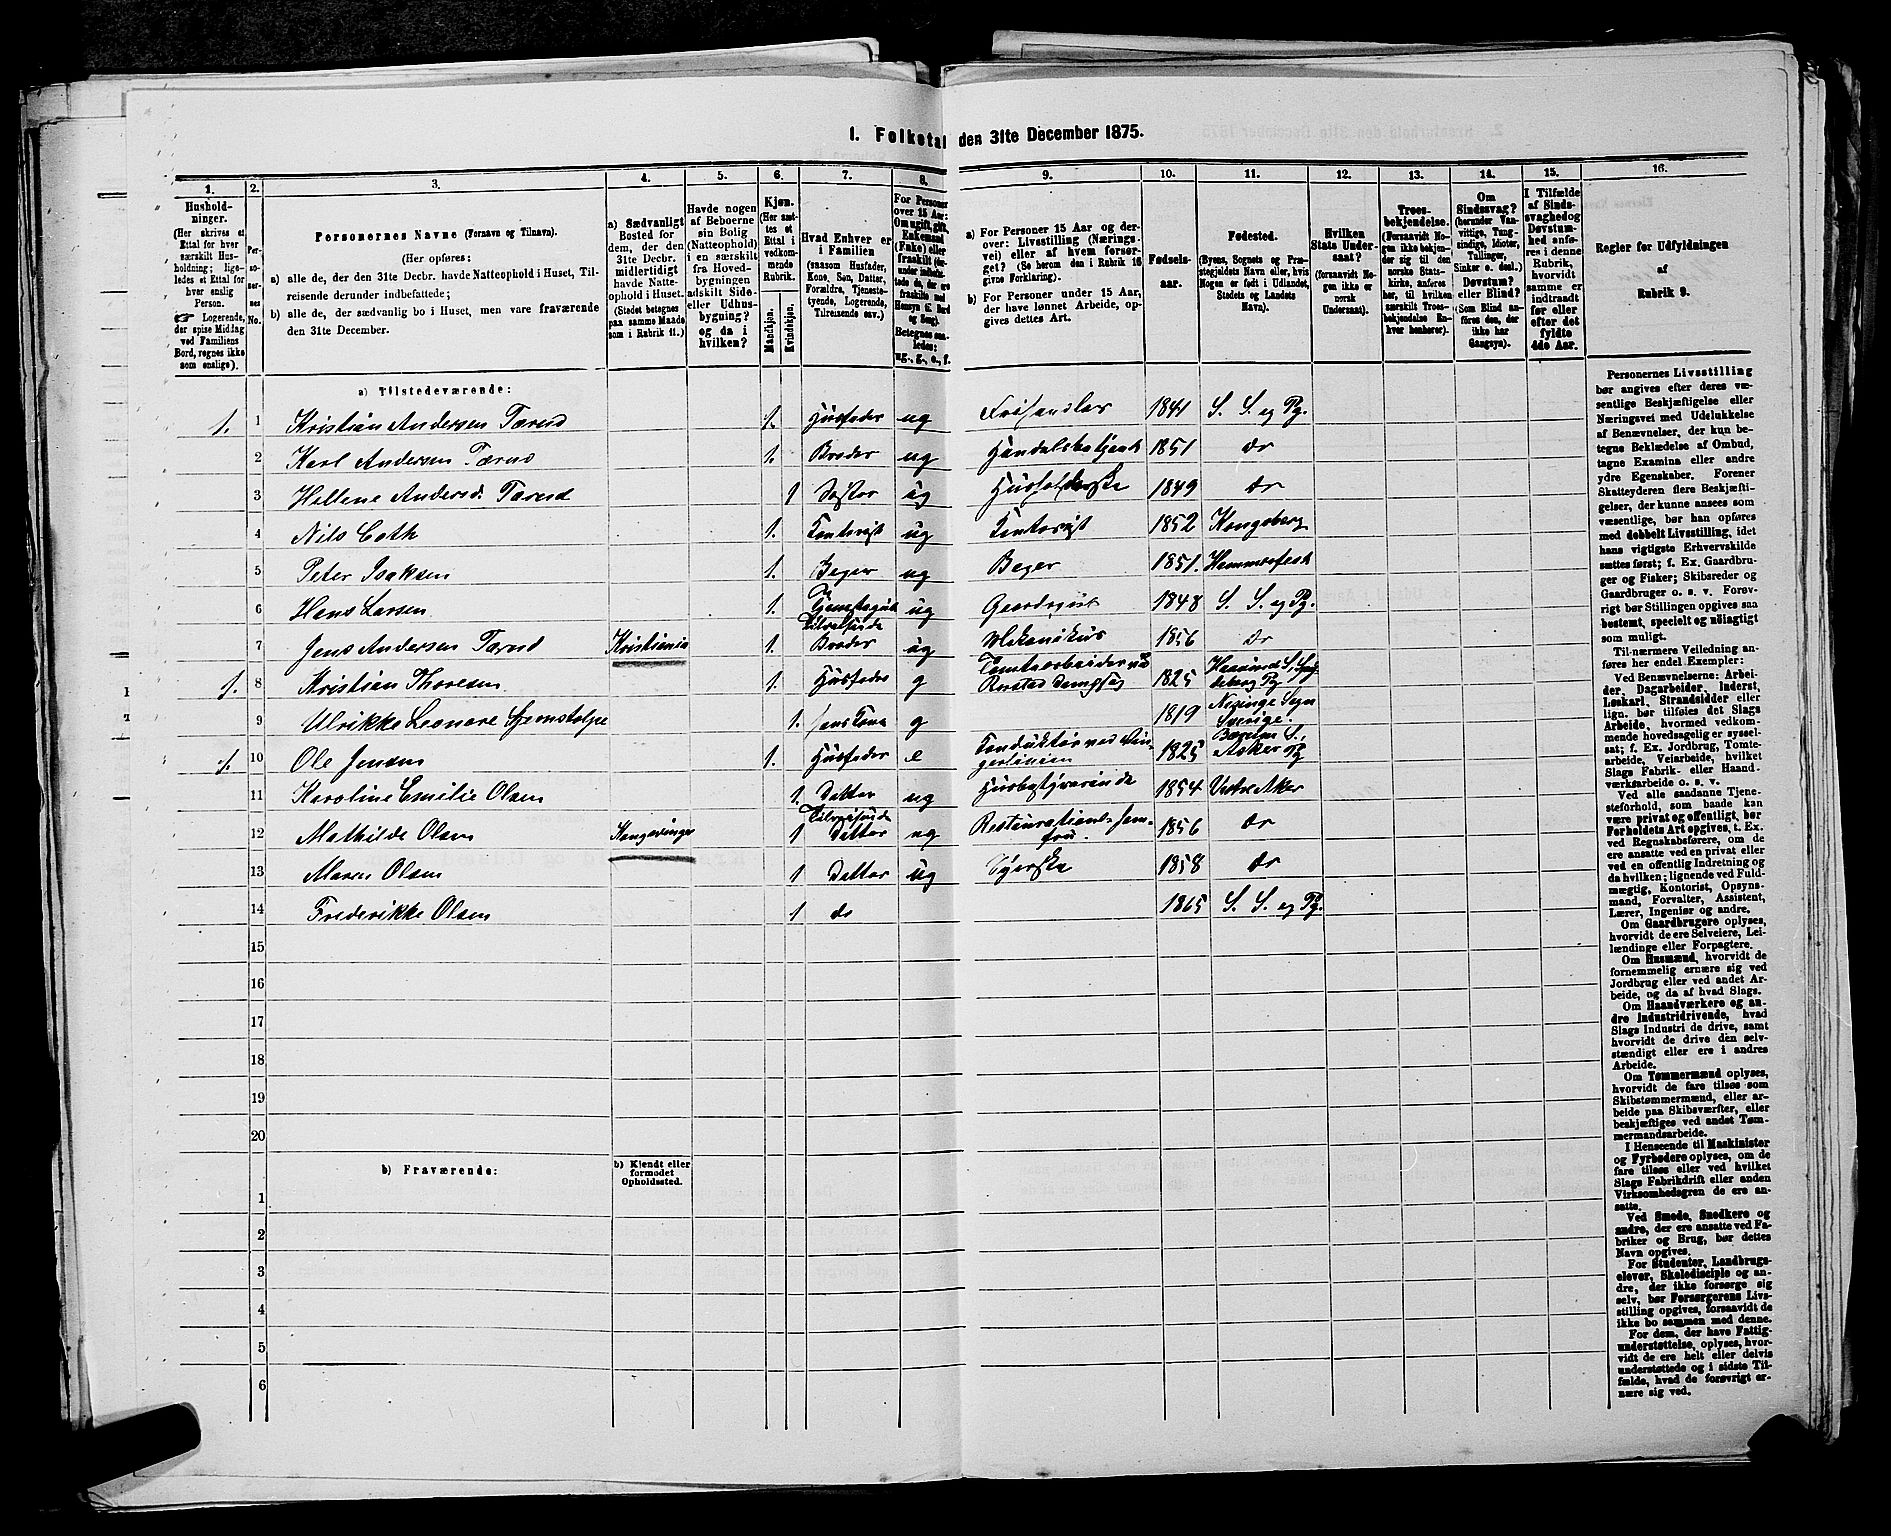 1. Folketal den 31te December 1875.
1.
Husholdninger.
(Her skrives et Ettal for hver særskilt Husholdning; ligeledes et Ettal for hver enslig Person.
☞ Logerende, der spise Middag ved Familiens Bord, regnes ikke som enslige).
2.
Personernes No.
3.
Personernes Navne (Fornavn og Tilnavn).
(Her opføres:
a) alle de, der den 31te Decbr. havde Natteophold i Huset, Tilreisende derunder indbefattede;
b) alle de, der sædvanlig bo i Huset, men vare fraværende den 31te December.
4.
a) Sædvanligt Bosted for dem, der den 31te Decbr. midlertidigt havde Natteophold i Huset. (Stedet betegnes paa samme Maade som i Rubrik 11.)
5.
Havde nogen af Beboerne sin Bolig (Natteophold) i en særskilt fra Hovedbygningen adskilt Side- eller Udhusbygning? og da i hvilken?
6.
Kjøn.
(Her sættes et Ettal i vedkommende Rubrik.
Mandkjøn. Kvindekjøn.
7.
Hvad Enhver er i Familien
(saasom Husfader, Kone, Søn, Datter, Forældre, Tjenestetyende, Logerende, Tilreisende osv.)
8.
For Personer over 15 Aar: Om ugift, gift, Enkemand (Enke) eller fraskilt
Betegnes saaledes: ug., g., e., f.
9.
a) For Personer 15 Aar og derover: Livsstilling (Næringsvei) eller af hvem forsørget? (Se herom den i Rubrik 16 givne Forklaring).
b) For Personer under 15 Aar, der have lønnet Arbeide, opgives dettes Art.
10.
Fødselsaar.
11.
Fødested.
(Byens, Sognets og Præstegjeldets Navn eller, hvis Nogen er født i Udlandet, Stedets og Landets Navn).
12.
Hvilken Stats Undersaat?
(forsaavidt Nogen ikke er norsk Undersaat).
13.
Troesbekjendelse.
(Forsaavidt Nogen ikke bekjender sig til den norske Statskirke, anføres her, til hvilken særskilt Troesbekjendelse Enhver henhører).
14.
Om Sindssvag? (herunder Vanvittige, Tungsindige, Idioter, Tullinger, Sinker o. desl.) Døvstum? eller Blind? (Som Blind anføres den, der ikke har Gangsyn).
15.
I Tilfælde af Sindssvaghed og Døvstumhed anføres i denne Rubrik, hvorvidt samme er indtraadt før eller efter det fyldte 4de Aar.
16.
Regler for Udfyldningen af Rubrik 9.
a) Tilstedeværende:
1. 1 Kristian Andersen Tærud 1. Husfader ug 1841 S. S. og Pg.
2 Karl Andersen Tærud 1. Broder ug Handelsbetjent 1851 do
3 Hellene Andersd. Tærud 1 Søster ug Husholderske 1849 do
4 Nils Coth 1. Kontorist ug Kontorist 1852 Kongsberg
5 Peter Isaksen 1. Bager ug Bager 1851. Hammerfest
6 Hans Larsen 1. ug Gaardsgut 1848 S. S. og Pg.
7 Jens Andersen Tærud Kristiania 1. Tilreisende Broder ug Mekanikus 1856 do
1. 8 Kristian Thoresen 1. Husfader g Tomtearbeider ved Dampsag 1825
9 Ulrikke Leonore Sjernstolpe 1. hans Kone g 1819 Sogn Sverige.
1. 10 Ole Jensen 1. Husfader e Konduktør ved 1825 Bærum S., Asker Pg
11 Karoline Emilie Olsen 1. Datter ug Husbestyrerinde 1854 Vestre Aker
12 Mathilde Olsen Kongsvinger 1 Tilreisende Datter ug Restaurations Jomfru. 1856 do
13 Maren Olsen 1 Datter ug Syerske 1858 do
14 Frederikke Olsen 1 do 1865 S. S. og Pg.
15
16
17
18
19
20
b) Fraværende: b) Kjendt eller formodet Opholdssted.
1
2
3
4
5
6
Personernes Livsstilling
bør angives efter deres væ-
sentlige Beskjæftigelse eller
Næringsvei med Udelukkelse
af Benævnelser, der kun be-
tegne Beklædelse af Ombud,
tagne Examina eller andre
ydre Egenskaber. Forener
Skatteyderen flere Beskjæfti-
gelser, der kunne ansees som
væsentlige, bør han opføres
med dobbelt Livsstilling, idet
hans vigtigste Erhvervskilde
sættes først; f. Ex. Gaardbru-
ger og Fisker; Skibsreder og
Gaardbruger o. s. v. Forøv-
rigt bør Stillingen opgives saa
bestemt, specielt og nøiagtigt
som muligt.
Til nærmere Veiledning an-
føres her endel Exempler:
Ved Benævnelserne: Arbei-
der, Dagarbeider, Inderst,
Løskarl, Strandsidder eller
lign. bør tilføies det Slags
Arbeide, hvormed vedkom-
mende hovedsagelig er syssel-
sat; f. Ex. Jordbrug, Tomte-
arbeide, Veiarbeide, hvilket
Slags Fabrik- eller Haand-
værksarbeide o. s. v.
Ved alle saadanne Tjene-
steforhold, som baade kan
være privat og offentligt, bør
Forholdets Art opgives, f. Ex.
ved Regnskabsførere, om de
ere ansatte ved en privat eller
ved en offentlig Indretning og
da hvilken; lignende ved Fuld-
mægtig, Kontorist, Opsyns-
mand, Forvalter, Assistent,
Lærer, Ingeniør og andre.
Om Gaardbrugere oplyses,
hvorvidt de ere Selveiere, Lei-
lændinge eller Forpagtere.
Om Husmænd, hvorvidt de
fornemmelig ernære sig ved
Jordbrug eller ved andet Ar-
beide, og da af hvad Slags.
Om Haandværkere og an-
dre Industridrivende, hvad
Slags Industri de drive, samt
hvorvidt de drive den selv-
stændigt eller ere i andres
Arbeide.
Om Tømmermænd oplyses,
hvorvidt de fare tilsøs som
Skibstømmermænd, eller ar-
beide paa Skibsværfter, eller
beskjæftiges ved andet Tøm-
mermandsarbeide.
I Henseende til Maskinister
og Fyrbødere oplyses, om de
fare tilsøs eller ved hvilket
Slags Fabrikdrift eller anden
Virksomhedsgren de ere an-
satte.
Ved Smede, Snedkere og
andre, der ere ansatte ved Fa-
briker og Brug, bør dettes
Navn opgives.
For Studenter, Landbrugs-
elever, Skoledisciple og an-
dre, der ikke forsørge sig
selv, bør Forsørgerens Livs-
stilling opgives, forsaavidt de
ikke bo sammen med denne.
For dem, der have Fattig-
understøttelse, oplyses, hvor-
vidt de ere helt eller delvis
understøttede og i sidste Til-
fælde, hvad de forøvrigt er-
nære sig ved.